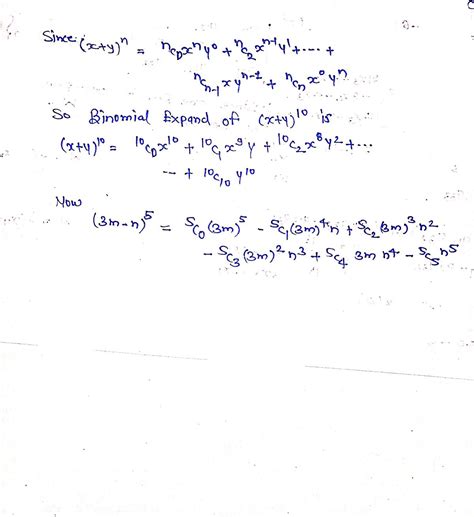 Since (x+y)^n = nC0 x^n y^0 + nC2 x^{n-1} y^1 + ---- +
nC_{n-1} x y^{n-1} + nCn x^0 y^n
So Binomial Expand of (x+y)^10 is
(x+y)^10 = 10C0 x^10 + 10C1 x^9 y + 10C2 x^8 y^2 + ---
--- + 10C10 y^10
Now
(3m-n)^5 = 5C0 (3m)^5 - 5C1 (3m)^4 n + 5C2 (3m)^3 n^2
- 5C3 (3m)^2 n^3 + 5C4 3m n^4 - 5C5 n^5